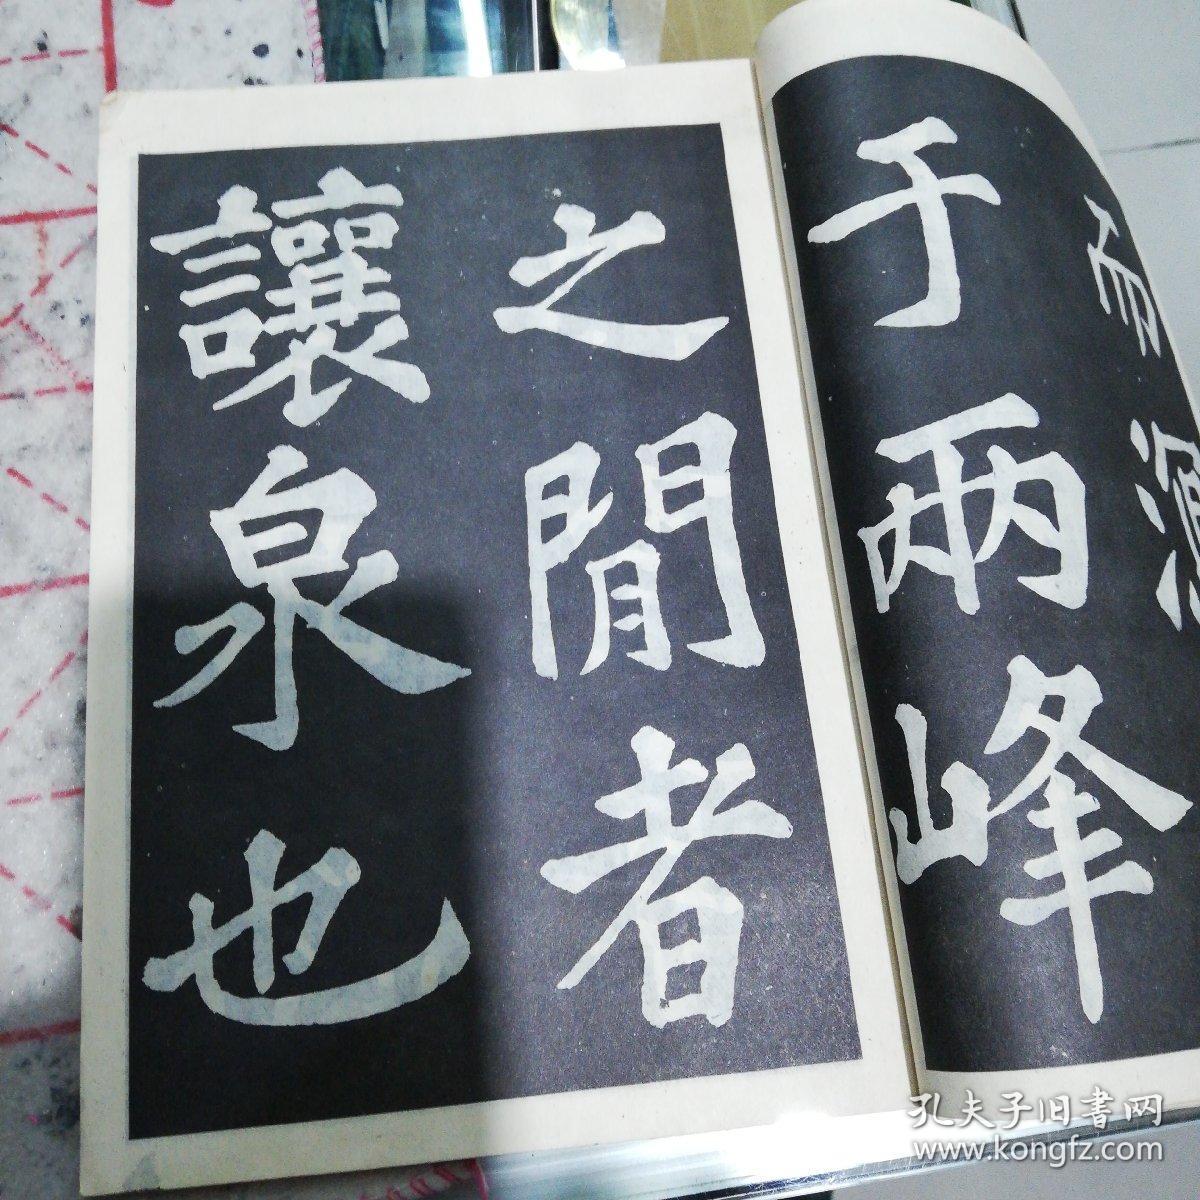 而
于兩峰
之閒者
讓泉也
孔夫子旧書网
www.kongfz.com